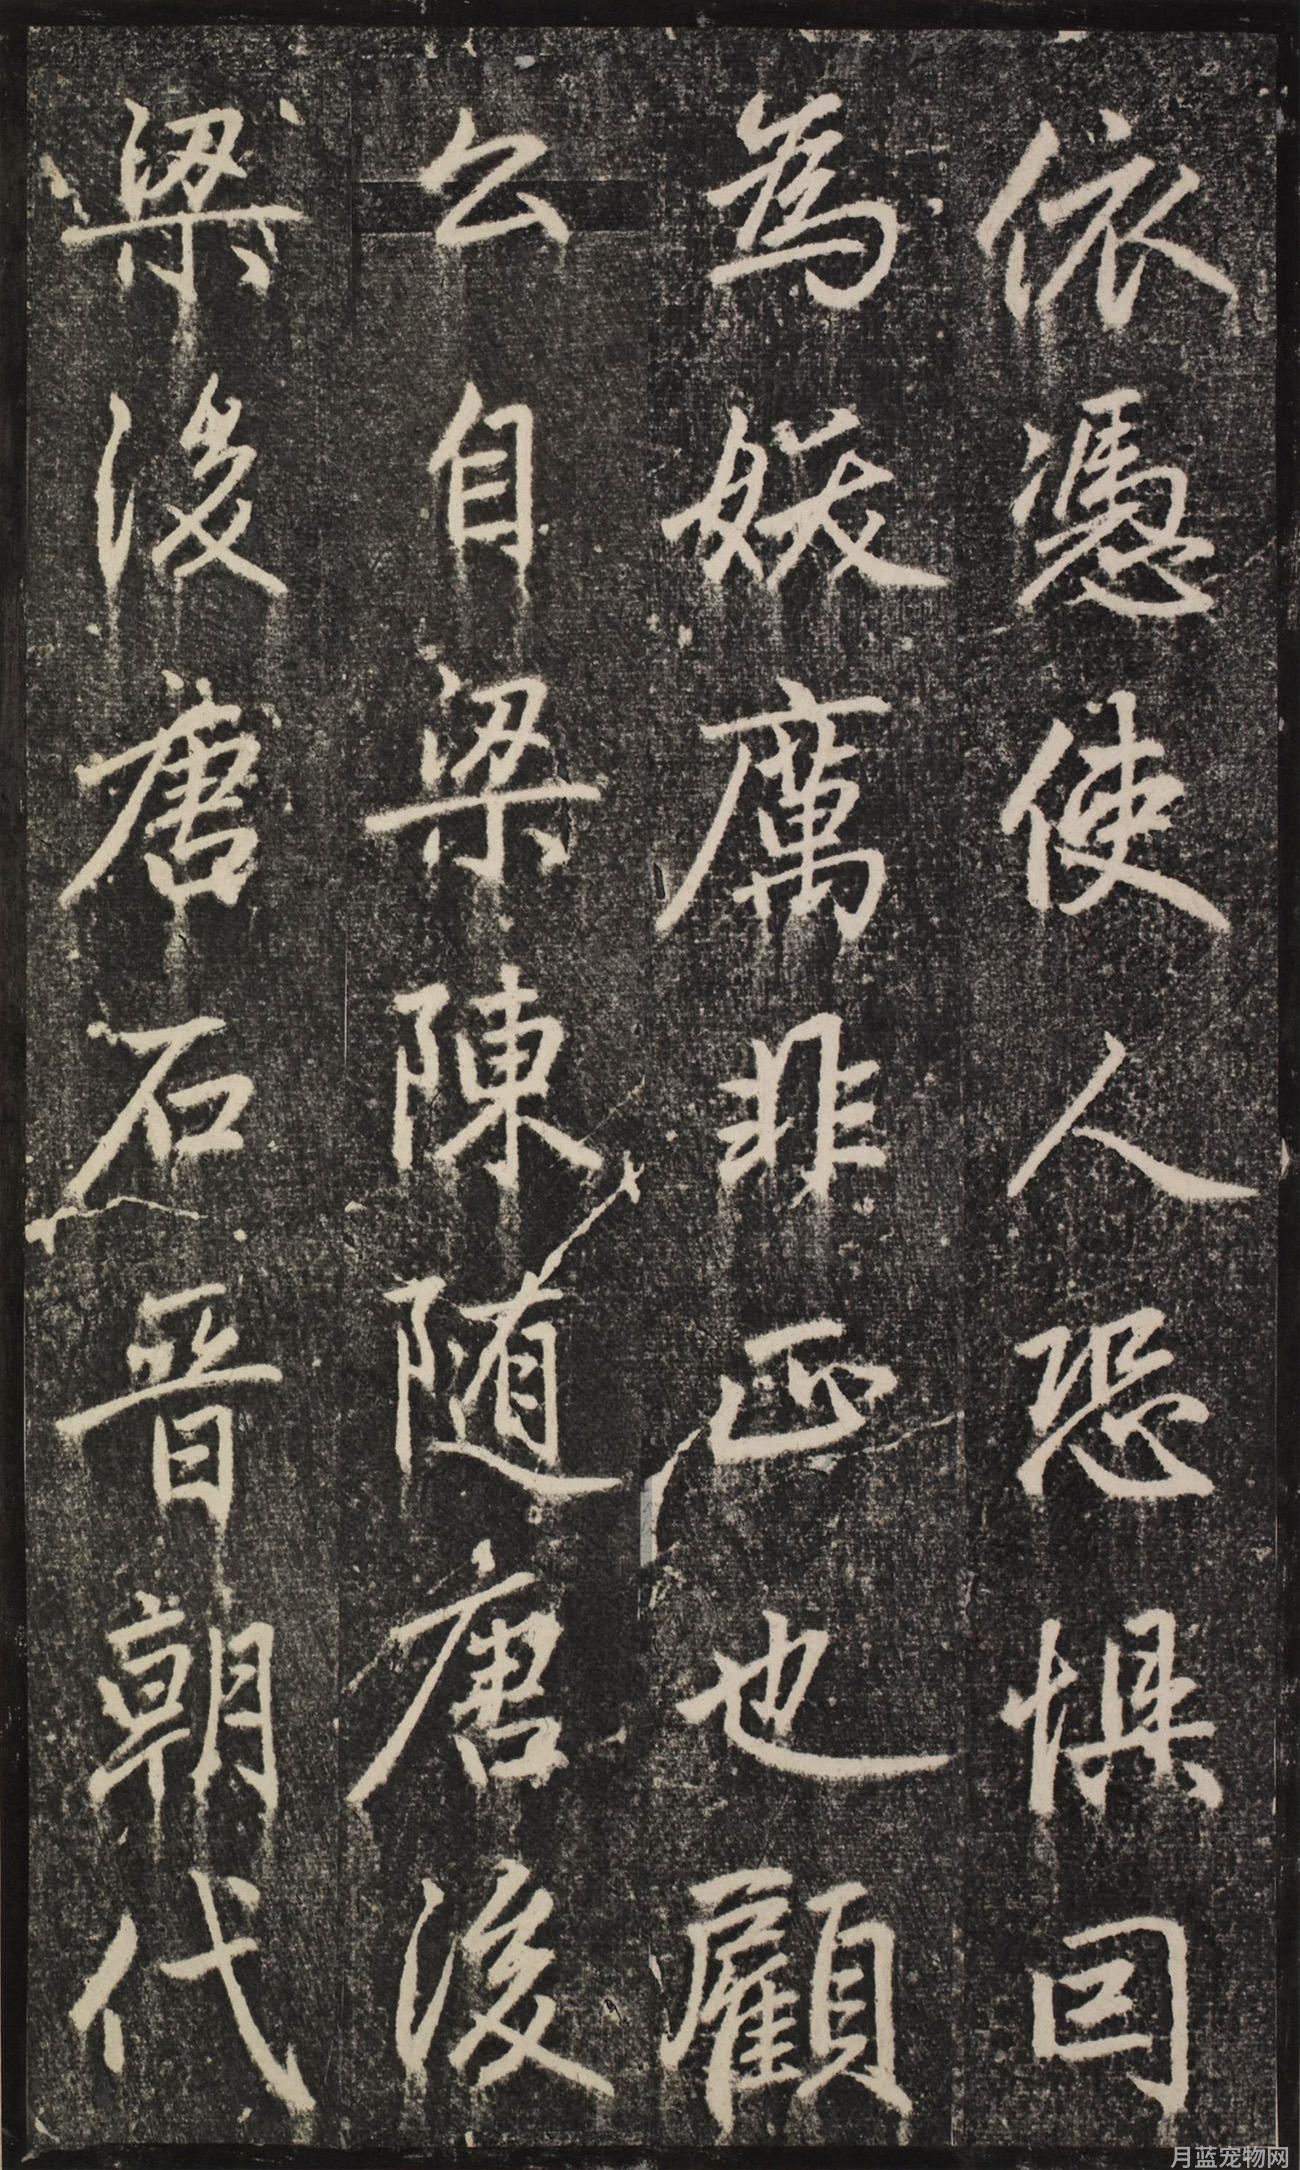 依憑使人恐懼因
為妖厲非正也顧
公自梁陳随唐後
梁後唐石晉朝代
月蓝宠物网